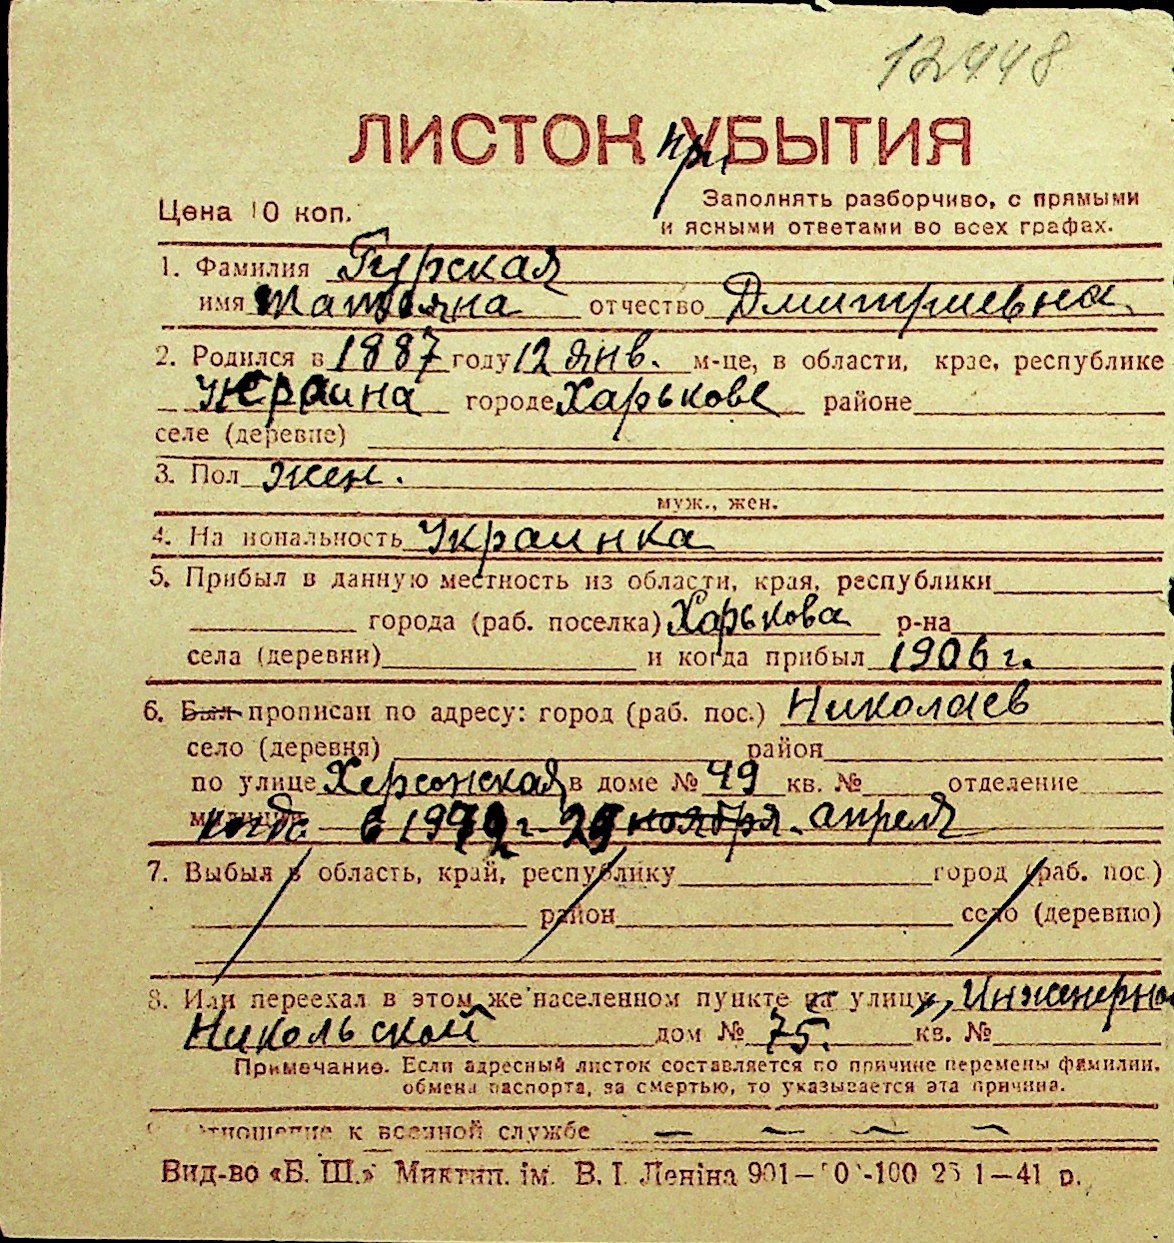 12448
ЛИСТОК при УБЫТИЯ
Цена 10 коп.
Заполнять разборчиво, с прямыми
и ясными ответами во всех графах.
1. Фамилия Гурская
имя Татьяна отчество Дмитриевна
2. Родился в 1887 году 12 янв. м-це, в области, крае, республике
Украина городе Харькове районе
селе (деревне)
3. Пол жен.
муж., жен.
4. На иональность Украинка
5. Прибыл в данную местность из области, края, республики
города (раб. поселка) Харькова р-на
села (деревни) и когда прибыл 1906 г.
6. Был прописан по адресу: город (раб. пос.) Николаев
село (деревня) район
по улице Херсонская в доме № 49 кв. № отделение
милиции когда в г. ноября. апреля
7. Выбыл в область, край, республику город (раб. пос.)
район село (деревню)
8. Или переехал в этом же населенном пункте на улицу Инженерно
Никольской дом № 75. кв. №
Примечание. Если адресный листок составляется по причине перемены фамилии,
обмена паспорта, за смертью, то указывается эта причина.
тношение к военной службе — — — —
Вид-во «Б. Ш.» Миктип. ім. В. І. Леніна 901— 0 -100 25 1—41 р.